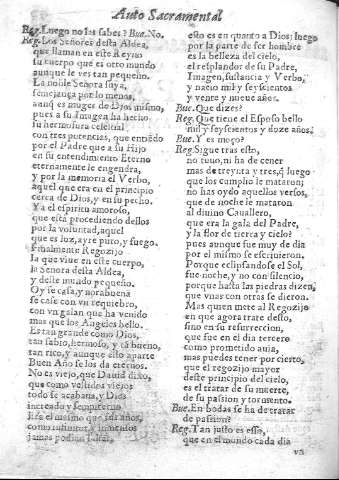 Auto Sacramental
Reg. Luego no las sabes? Bue. No.
Reg. Los Señores desta Aldea,
que llaman en este Reyno
su cuerpo que es otro mundo
aunque le ves tan pequeño.
La noble Señora suya,
semejança por lo menos,
aunq̃ es muger de Dios mismo,
pues a su Imagen ha hecho
su hermosura celestial
con tres potencias, que entiẽdo
por el Padre que a su Hijo
en su entendimiento Eterno
eternamente le engendra,
y por la memoria el Verbo,
aquel que era en el principio
cerca de Dios, y en su pecho.
Ya el espiritu amoroso,
que està procediendo dellos
por la voluntad, aquel
que es luz, ayre puro, y fuego.
Finalmente Regozijo
la que viue en este cuerpo,
la Señora desta Aldea,
y deste mundo pequeño.
Oy se casa, y norabuena
se case con vn requiebro,
con vn galan que ha venido
mas que los Angeles bello.
Es tan grande como Dios,
tan sabio, hermoso, y tã bueno,
tan rico, y aunque esto aparte
Buen Año se los da eternos.
No es viejo, que Dauid dixo,
que como vestidos viejos
todo se acabaria, y Dios
increado y sempiterno
era el mismo que sus años,
como infinitos, è inmensos
jamas podian faltar,
esto es en quanto a Dios; luego
por la parte de ser hombre
es la belleza del cielo,
el resplandor de su Padre,
Imagen, sustancia y Verbo,
y nacio mil y seyscientos
y veynte y nueve años.
Bue. Que dizes?
Reg. Que tiene el Esposo bello
mil y seyscientos y doze años.
Bue. Y es moço?
Reg. Sigue tras esto,
no tuuo, ni ha de tener
mas de treynta y tres, q̃ luego
que los cumplio le mataron;
no has oydo aquellos versos,
que de noche le mataron
al diuino Cauallero,
que era la gala del Padre,
y la flor de tierra y cielo?
pues aunque fue muy de dia
por el mismo se escriuieron.
Porque eclipsandose el Sol,
fue noche, y no con silencio,
porque hasta las piedras dizen,
que vnas con otras se dieron.
Mas quien mete al Regozijo
en que agora trate desto,
sino en su resurreccion,
que fue en el dia tercero
como prometido auia,
mas puedes tener por cierto,
que el regozijo mayor
deste principio del cielo,
es el tratar de su muerte,
de su passion y tormento.
Bue. En bodas se ha de tratar
de passion?
Reg. Tan justo es esso,
que en el mundo cada dia
vn